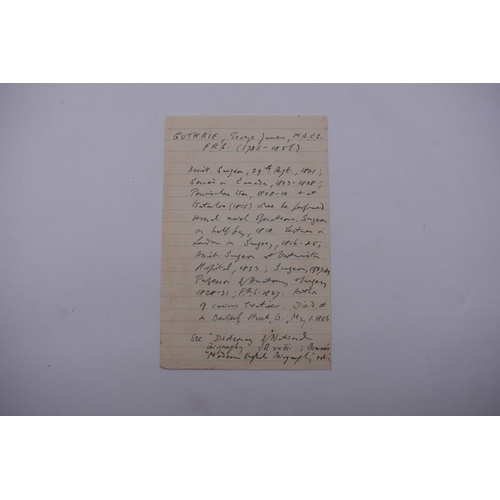 GUTHRIE, George James, M.R.C.S.
F.R.S. (1785-1856)
Assist. Surgeon, 29th Regt., 1801;
Served in Canada, 1803-1808;
Peninsular War, 1808-14 & at
Waterloo (1815) where he performed
several novel operations. Surgeon
on half pay, 1814. Lecturer in
London on Surgery, 1816-46;
Assist. Surgeon at Westminster
Hospital, 1823; Surgeon,
Professor of Anatomy & Surgery
1828-31; F.R.S. 1827. Author
of various treatises. Died at
in Berkeley Street, W., May 1. 1856
See "Dictionary of National
Biography" xxiii; Boase's
"Modern English Biography,"